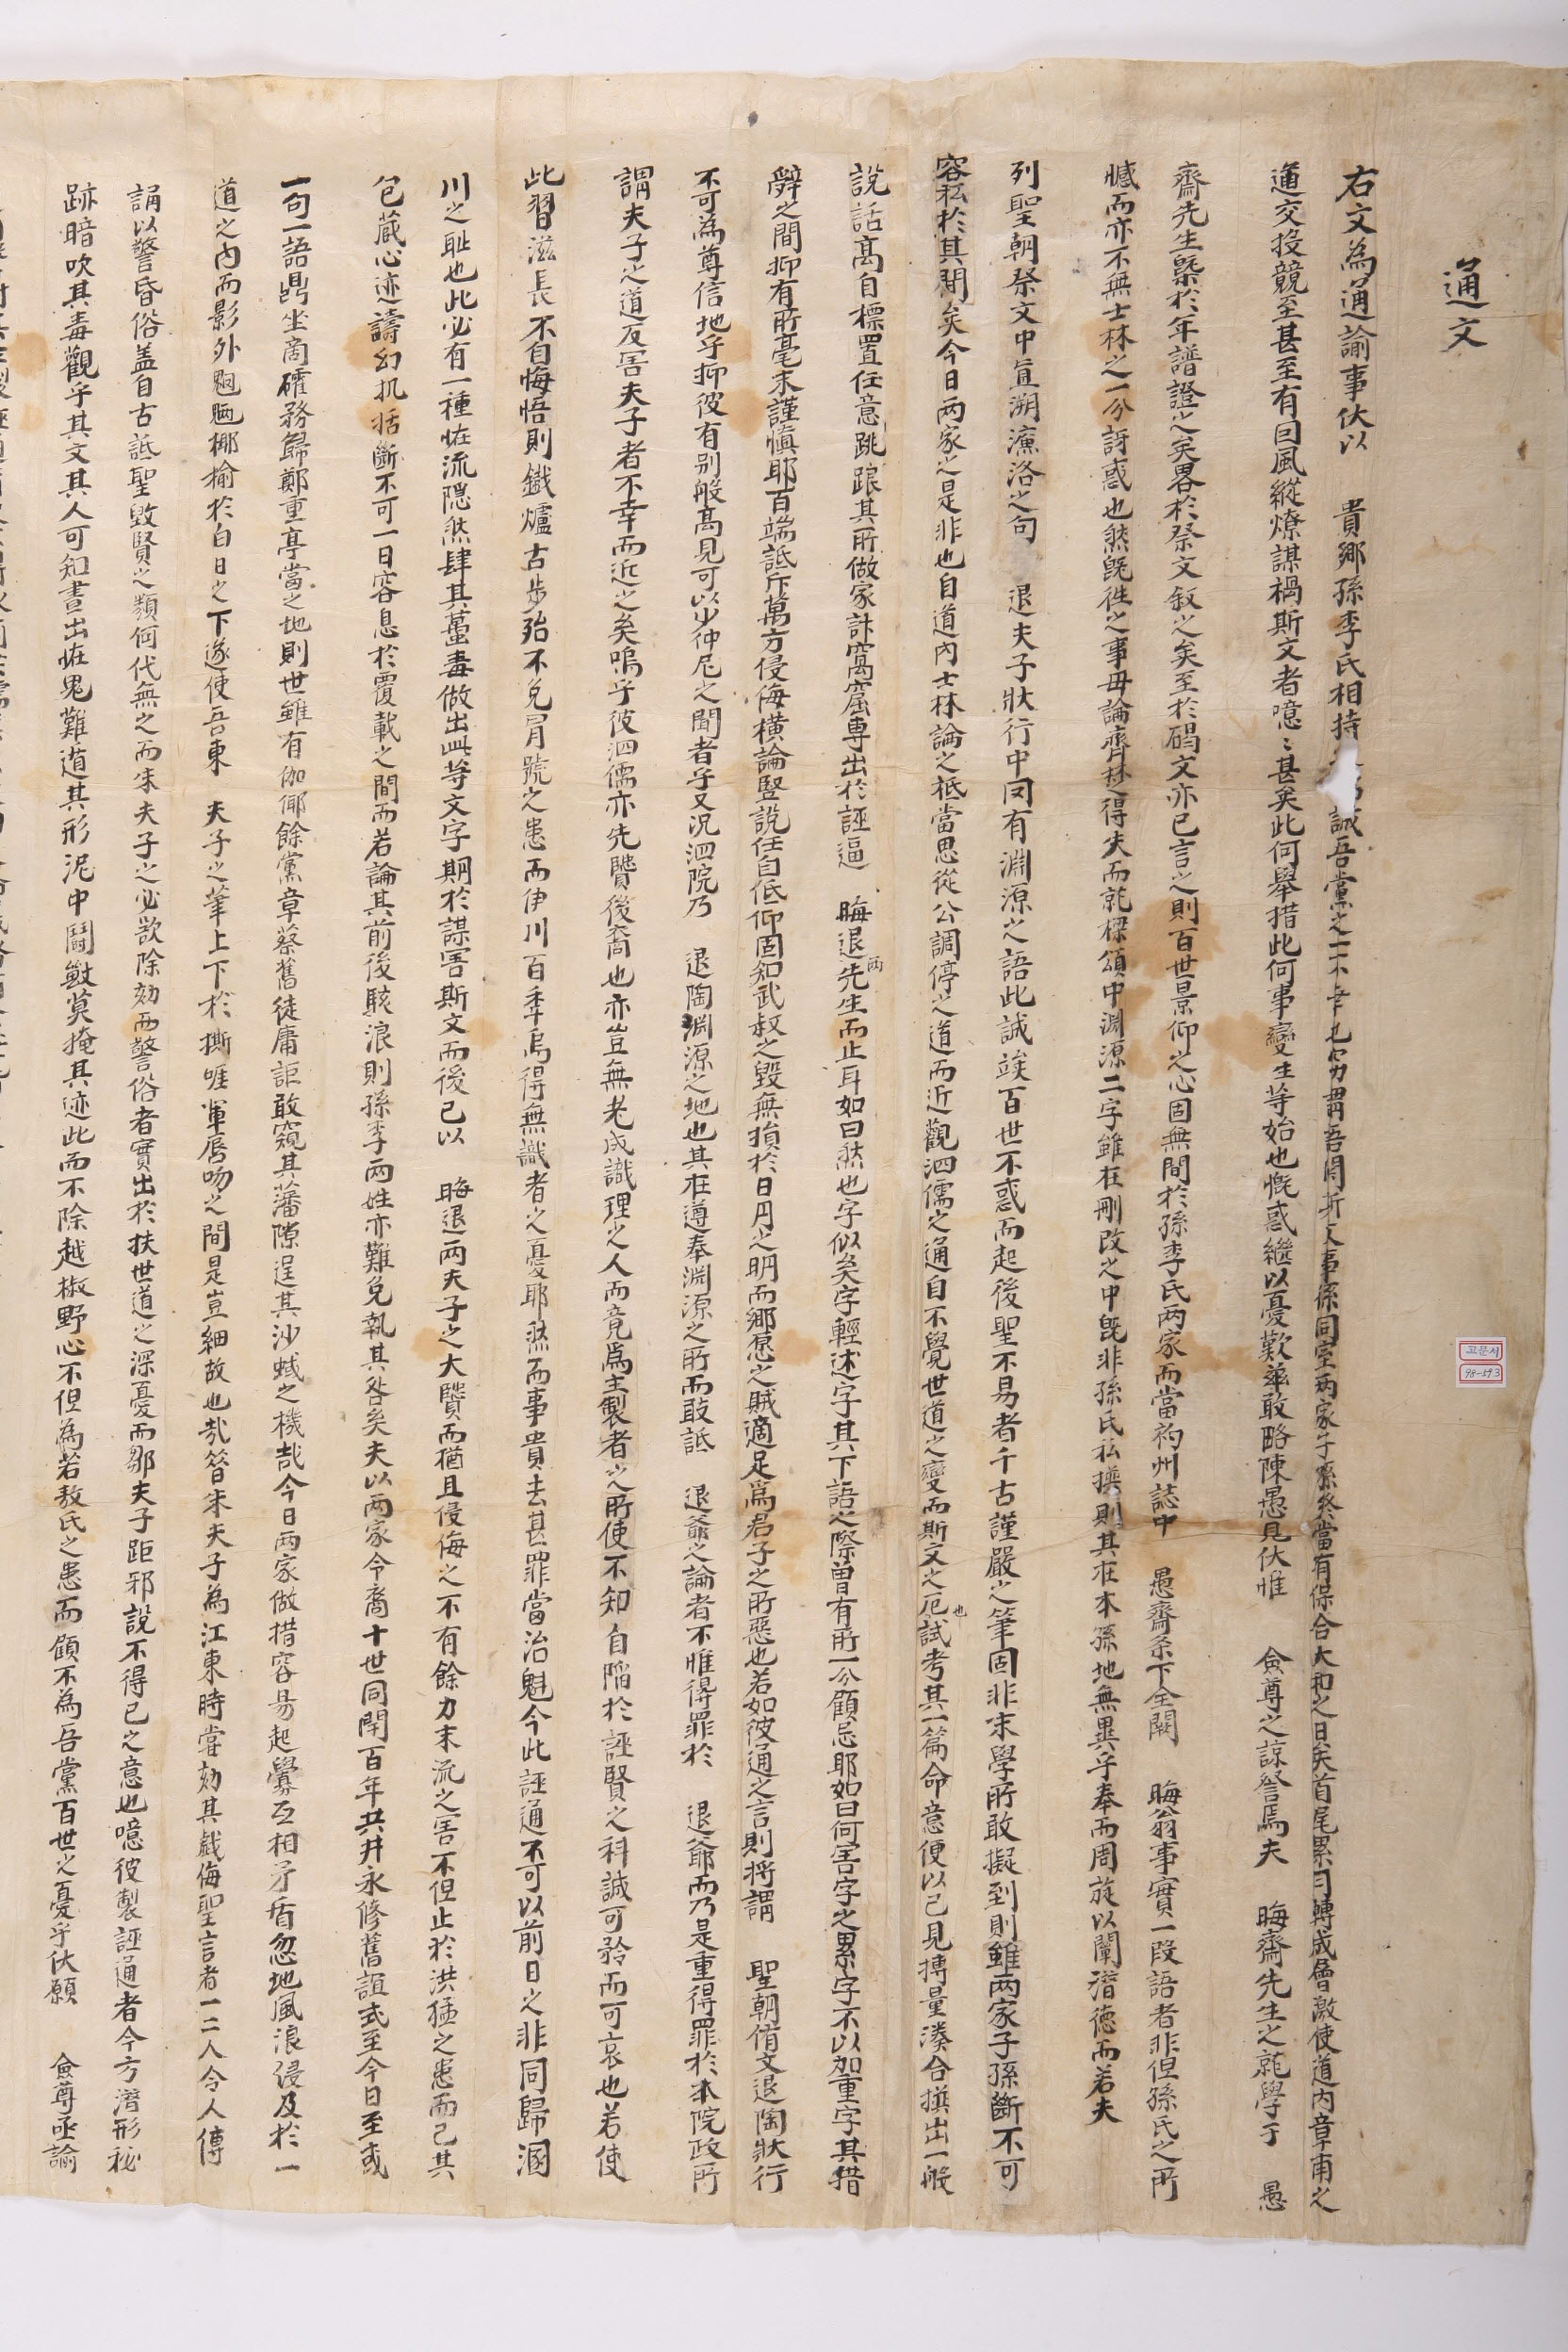 通文
右文為通諭事伏以 貴鄉孫李氏相持 誠吾黨之一不幸也 吾 斯文事係同室兩家子孫終當有保合大和之日矣首尾累 轉成層激使道內章甫之
通交投競至甚至有回風縱燎謀禍斯文者噫噫甚矣此何舉措此何事變生等始也慨惑繼以憂歎玆敢略陳愚見伏惟 僉尊之諒詧焉夫 晦齋先生之就學于 愚
齋先生槩於年譜證之矣畧於祭文叙之矣至於碣文亦已言之則百世景仰之心固無間於孫李氏兩家而當初州誌中 愚齋条下全闕 晦翁事實一段語者非但孫氏之所
憾而亦不無士林之一分訝惑也然旣徃之事毋論齊楚得失而就樑頌中淵源二字雖在刪改之中旣非孫氏私撰則其在本孫地無異乎奉而周旋以闡潛德而若夫
列聖朝祭文中直溯濂洛之句 退夫子狀行中罔有淵源之語此誠竢百世不惑而起後聖不易者千古謹嚴之筆固非末學所敢擬到則雖兩家子孫斷不可
容私於其間矣今日兩家之是非也自道內士林論之祗當思從公調停之道而近觀泗儒之通自不覺世道之變而斯文之厄也試考其一篇命意便以己見摶量湊合撰出一般
說話高自標置任意跳踉其所做家計窩窟專出於誣逼 晦退兩先生而止耳如曰然也字似矣字輕述字其下語之際曾有所一分顧忌耶如曰何害字之累字不以加重字其措
辭之間抑有所毫末謹愼耶百端詆斥萬方侵侮橫論竪說任自低仰固知武叔之毀無損於日月之明而鄕愿之賊適足爲君子之所惡也若如彼通之言則將謂 聖朝侑文退陶狀行
不可為尊信地乎抑彼有別般高見可以少仲尼之聞者乎又況泗院乃 退陶淵源之地也其在遵奉淵源之所而敢詆 退爺之論者不惟得罪於 退爺而乃是重得罪於本院政所
謂夫子之道反害夫子者不幸而近之矣嗚乎彼泗儒亦先賢後裔也亦豈無老成識理之人而竟爲主製者之所使不知自陷於誣賢之科誠可矜而可哀也若使
此習滋長不自悔悟則鐵爐古步殆不免冐號之患而伊川百年烏得無識者之憂耶然而事貴去甚罪當治魁今此誣通不可以前日之非同歸溷
川之耻也此必有一種恠流隱然肆其蠆毒做出此等文字期於謀害斯文而後已以 晦退兩夫子之大賢而猶且侵侮之不有餘力末流之害不但止於洪猛之患而已其
包藏心迹譸幻机括斷不可一日容息於覆載之間而若論其前後駭浪則孫李兩姓亦難免執其咎矣夫以兩家令裔十世同閈百年共井永修舊誼式至今日至或
一句一語鼎坐商確務歸鄭重亭當之地則世雖有伽倻餘黨章蔡舊徒庸詎敢窺其藩隙逞其沙蜮之機哉今日兩家做措容昜起釁互相矛盾忽地風浪侵及於一
道之內而影外魍魎揶揄於白日之下遂使吾東 夫子之筆上下於撕啀軍唇吻之間是豈細故也哉昝朱夫子為江東時當劾其戱侮聖言者一二人令人傳
誦以警昏俗盖自古詆聖毀賢之類何代無之而朱夫子之必欲除劾而警俗者實出於扶世道之深憂而鄒夫子距邪說不得已之意也噫彼製誣通者今方潛形秘
跡暗吹其毒觀乎其文其人可知晝出恠鬼難逭其形泥中鬪獸莫掩其迹此而不除越椒野心不但為若敖氏之患而顧不為吾黨百世之憂乎伏願 僉尊亟諭
고문서
98-59.3